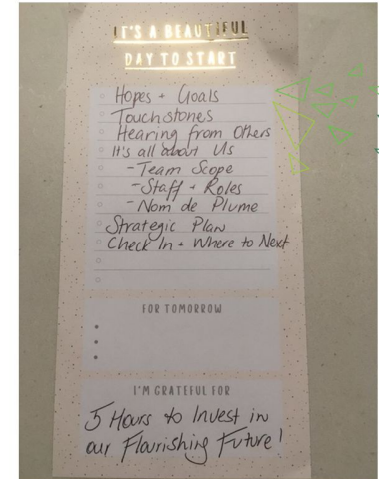 IT'S A BEAUTIFUL
DAY TO START
Hopes + Goals
Touchstones
Hearing from Others
It's all about Us
- Team Scope
- Staff + Roles
- Nom de Plume
Strategic Plan
Check In + Where to Next
FOR TOMORROW
I'M GRATEFUL FOR
5 Hours to Invest in
our Flourishing Future!